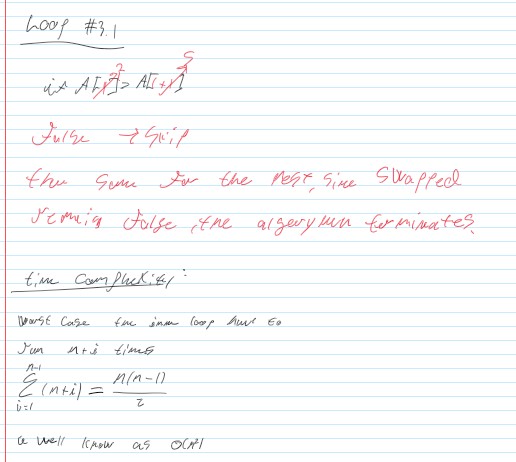 Loop #3.1
if A[1]2 > A[1+1]5
False → Skip
the same for the rest, since Swapped
remain false, the algorythm terminates.
time complexity:
Worst Case the inner loop have to
run n+i times
n-1
∑ (n+i) = n(n-1)
i=1 2
a well know as O(n²)